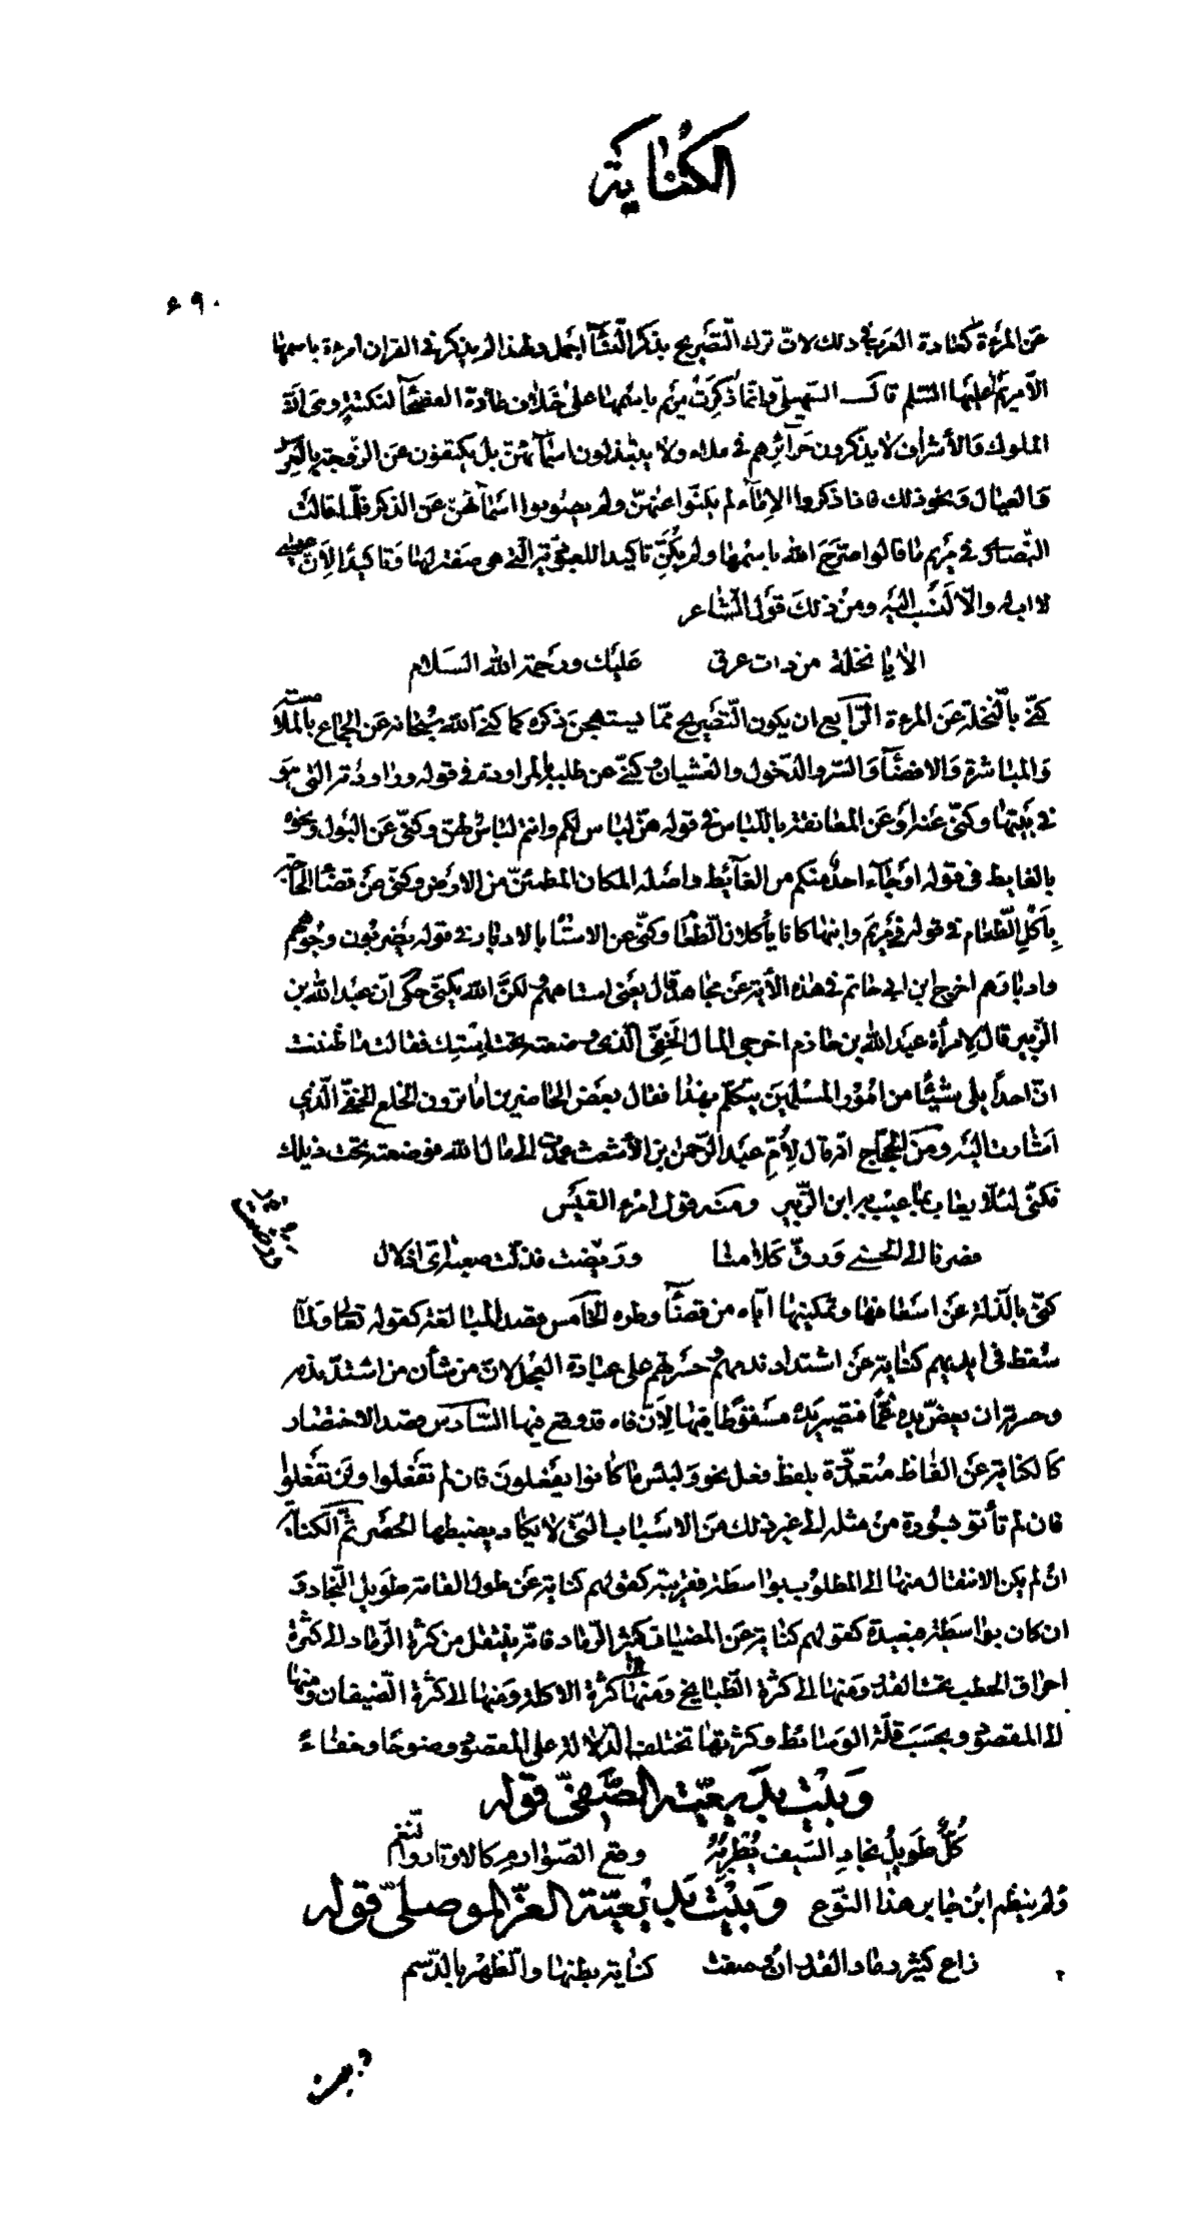 الكناية
٦٩٠
عن المرءة كعادة العرب في ذلك لانّ ترك التصريح بذكر النسآء اجمل ولهذا لم يذكر في القران امرءة باسمها
الّا مريم عليها السّلم قالـــ السّهيلي وانّما ذكرت مريم باسمها على خلاف عادة الفصحآء لنكتة وهى انّ
الملوك والأشراف لا يذكرون حرائرهم في ملاء ولا يبتذلون اسمآئهنّ بل يكنّون عن الزّوجة بالعرس
والعيال ونحو ذلك فاذا ذكروا الإمآء لم يكنّوا عنهنّ ولم يصونوا اسمآئهنّ عن الذكر فلمّا قالت
النّصارى في مريم ما قالوا صرّح الله باسمها ولم يكنّ تاكيدا للعبوديّة الّتي هي صفة لها وتاكيدا لأنّ عيسى
لا اب له والّا لنسب اليه ومن ذلك قول الشّاعر
الا يا نخلة من ذات عرق عليك ورحمة الله السلام
كنّى بالنّخلة عن المرءة الرّابع ان يكون التّصريح ممّا يستهجن ذكره كما كنّى الله سبحانه عن الجماع بالملامسة
والمباشرة والافضآء والسّر والدّخول والغشيان وكنّى عن طلبه بالمراودة في قوله وراودته التي هو
في بيتها وكنّى عنه او عن المعانقة باللّباس في قوله هنّ لباس لكم وانتم لباس لهنّ وكنّى عن البول ونحوه
بالغايط في قوله او جآء احد منكم من الغآئط واصله المكان المطمئنّ من الارض وكنّى عن قضآء الحاجة
باكل الطّعام في قوله في مريم وابنها كانا يأكلان الطّعام وكنّى عن الاستاه بالادبار في قوله يضربون وجوههم
وادبارهم اخرج ابن ابي حاتم في هذه الأية عن مجاهد قال يعني استاههم ولكنّ الله يكنّى حكى انّ عبد الله بن
الزّبير قال لامرأة عبد الله بن حازم اخرجي المال الخفيّ الّذي وضعته تحت استك فقالت ما ظننت
انّ احداً يلي شيئًا من امور المسلمين يتكلّم بهذا فقال بعض الحاضرين اما ترون الخلع الخفيّ الّذي
اشارت اليه وعن الحجّاج انّه قال لأمّ عبد الرّحمن بن الأشعث عمدت الى مال الله فوضعته تحت ذيلك
فكنّى لئلّا يعاب بما عيب به ابن الزّبير ومنه قول امرء القيس
فصرنا الى الحسنى ورقّ كلامنا ورضت فذلّت صعبة اىّ اذلال
كنّى بالذّلة عن اسعافها وتمكينها ايّاه من قضآء وطره الخامس قصد المبالغة كقوله تعا ولمّا
سقط في ايديهم كناية عن اشتداد ندمهم وحسرتهم على عبادة العجل لانّ من شأن من اشتدّ ندمه
وحسرته ان يعضّ يده غمّا فتصير يده مسقوطا فيها لأنّ فاه قد وقع فيها السّادس قصد الاختصار
كالكناية عن الفاظ متعدّدة بلفظ فعل نحو ولبئس ما كانوا يفعلون فان لم تفعلوا ولن تفعلوا
فان لم تأتو بسورة من مثله الى غير ذلك من الاسباب التي لا يكاد يضبطها الحصر ثمّ الكناية
ان لم يكن الانتقال منها الى المطلوب بواسطة فقريبة كقولهم كناية عن طول القامة طويل النّجاد و
ان كان بواسطة فبعيدة كقولهم كناية عن المضياف كثير الرّماد فانّه ينتقل من كثرة الرّماد الى كثرة
احراق الحطب تحت القدر ومنها الى كثرة الطّبايخ ومنها الى كثرة الاكلة ومنها الى كثرة الضّيفان ومنها
الى المقصود وبحسب قلّة الوسائط وكثرتها تختلف الدّلالة على المقصود وضوحا وخفاءً
وبيت بديعيّة الصّفيّ قوله
كلّ طويل نجاد السّيف يطربه وقع الصّوارم كالاوتار والنّغم
ولم ينظم ابن جابر هذا النّوع وبيت بديعيّة العزّ الموصليّ قوله
داع كثير رماد القدر ان وصفت كناية بطنها والظّهر بالدّسم